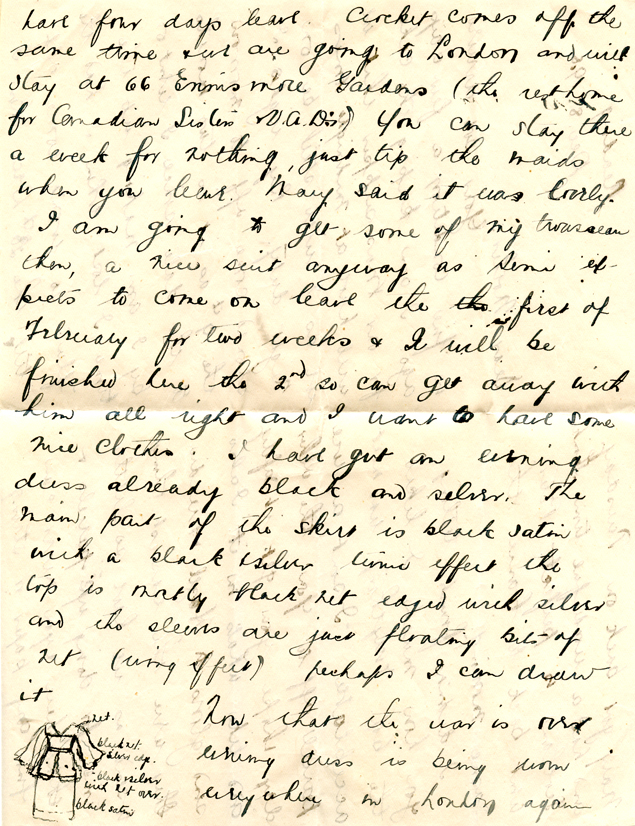 have four days leave. Crocket comes off the
same time & we are going to London and will
stay at 66 Ennismore Gardens (the rest home
for Canadian Sisters & V.A.D's) You can stay there
a week for nothing, just tip the maids
when you leave. Mary said it was lovely.
I am going to get some of my trousseau
then, a nice suit anyway as Semi ex-
pects to come on leave the the first of
February for two weeks & I will be
finished here the 2nd so can get away with
him all right and I want to have some
nice clothes. I have got an evening
dress already black and silver. The
main part of the skirt is black satin
with a black & silver tunic effect the
top is mostly black net edged with silver
and the sleeves are just floating bits of
net (wing effect) perhaps I can draw
it
net.
black net.
silver edge.
black & silver
with net over.
black satin
Now that the war is over
evening dress is being worn
everywhere in London again